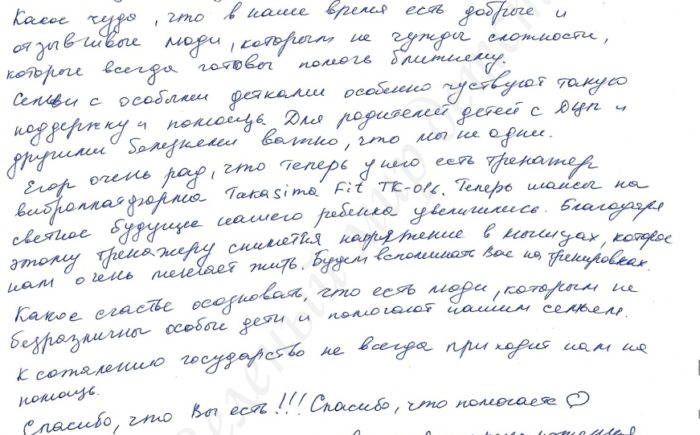 Какое чудо, что в наше время есть добрые и
отзывчивые люди, которым не чужды сложности,
которые всегда готовы помочь ближнему.
Семьи с особыми детками особенно чуствуют такую
поддержку и помощь. Для родителей детей с ДЦП и
другими болезнями важно, что мы не одни.
Егор очень рад, что теперь у него есть тренажер
виброплатформа Takasima Fit TK-016. Теперь шансы на
светлое будущее нашего ребенка увеличились. Благодаря
этому тренажеру снимется напряжение в мышцах, которое
нам очень мешает жить. Будем вспоминать Вас на тренировках.
Какое счастье осозновать, что есть люди, которым не
безразличны особые дети и помогают нашим семьям.
К сожалению государство не всегда приходит нам на
помощь.
Спасибо, что Вы есть!!! Спасибо, что помогаете